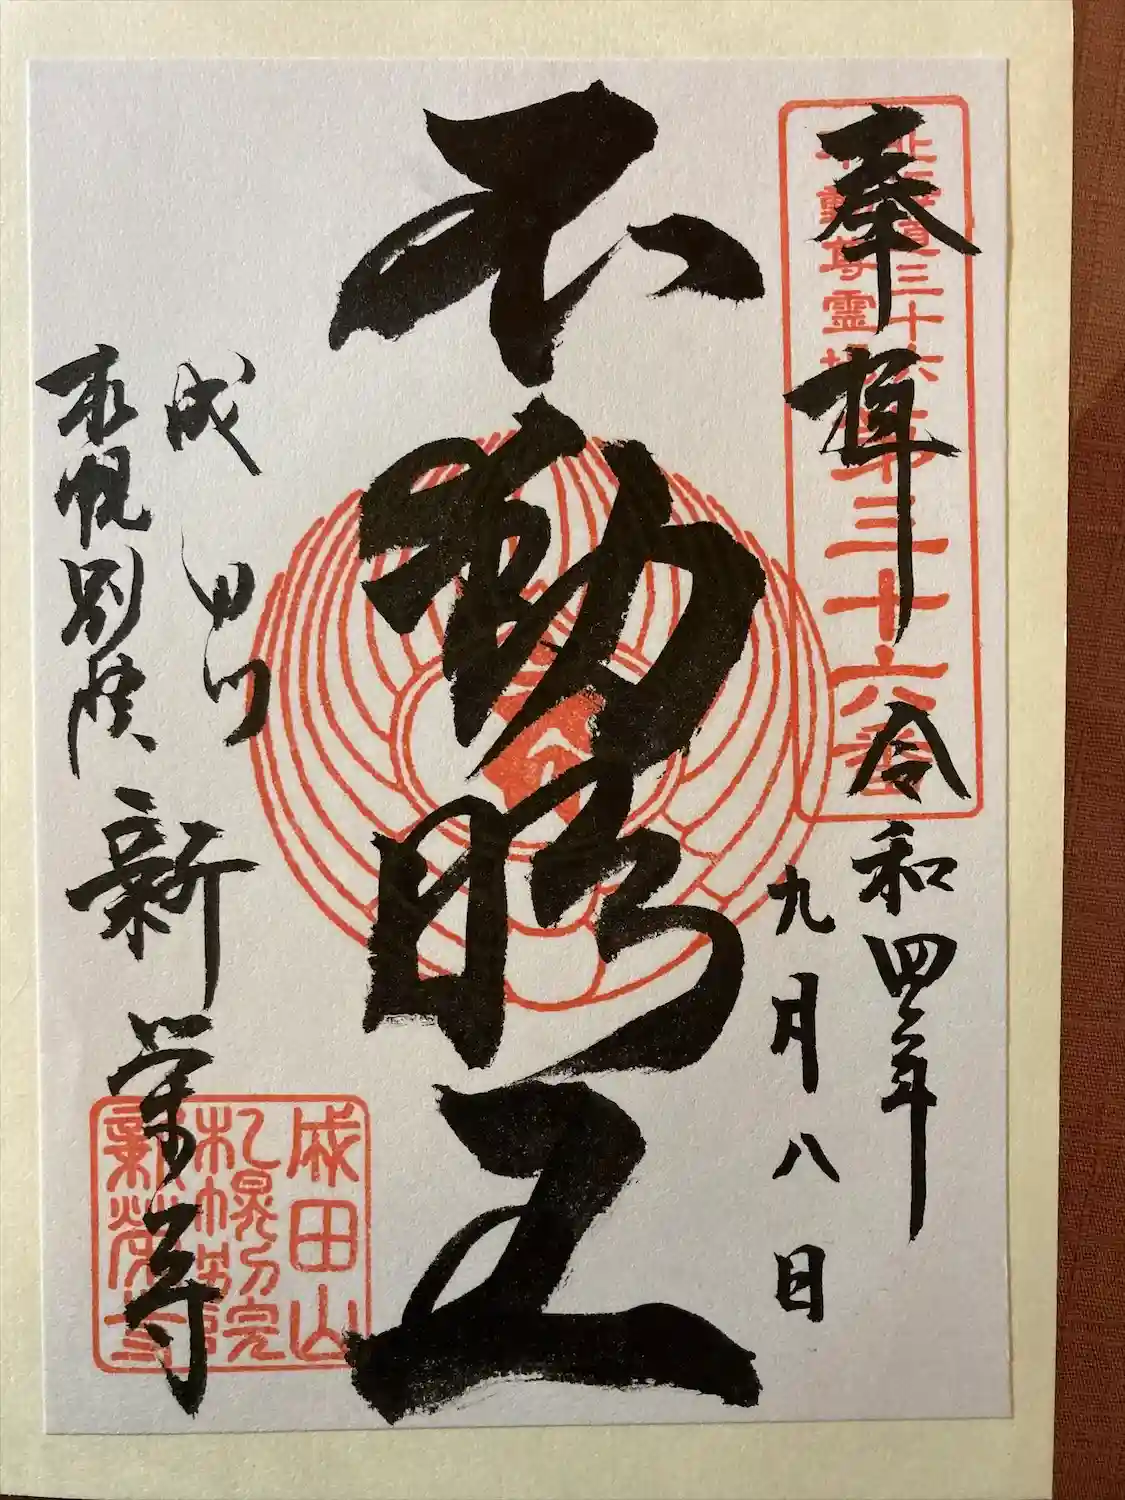 奉拝
令和四年
九月八日
北海道三十六
不動尊霊場
第三十六番
不動明王
成田山
札幌別院
新栄寺
成田山
札幌別院
新栄寺